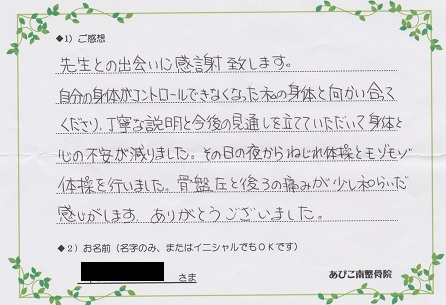 ◆1）ご感想
先生との出会いに感謝致します。
自分の身体がコントロールできなくなった私の身体と向かい合って
くださり、丁寧な説明と今後の見通しを立てていただいて身体と
心の不安が減りました。その日の夜からねじれ体操とモゾモゾ
体操を行いました。骨盤左と後ろの痛みが少し和らいだ
感じがします。ありがとうございました。
◆2）お名前（名字のみ、またはイニシャルでもＯＫです）
さま
あびこ南整骨院